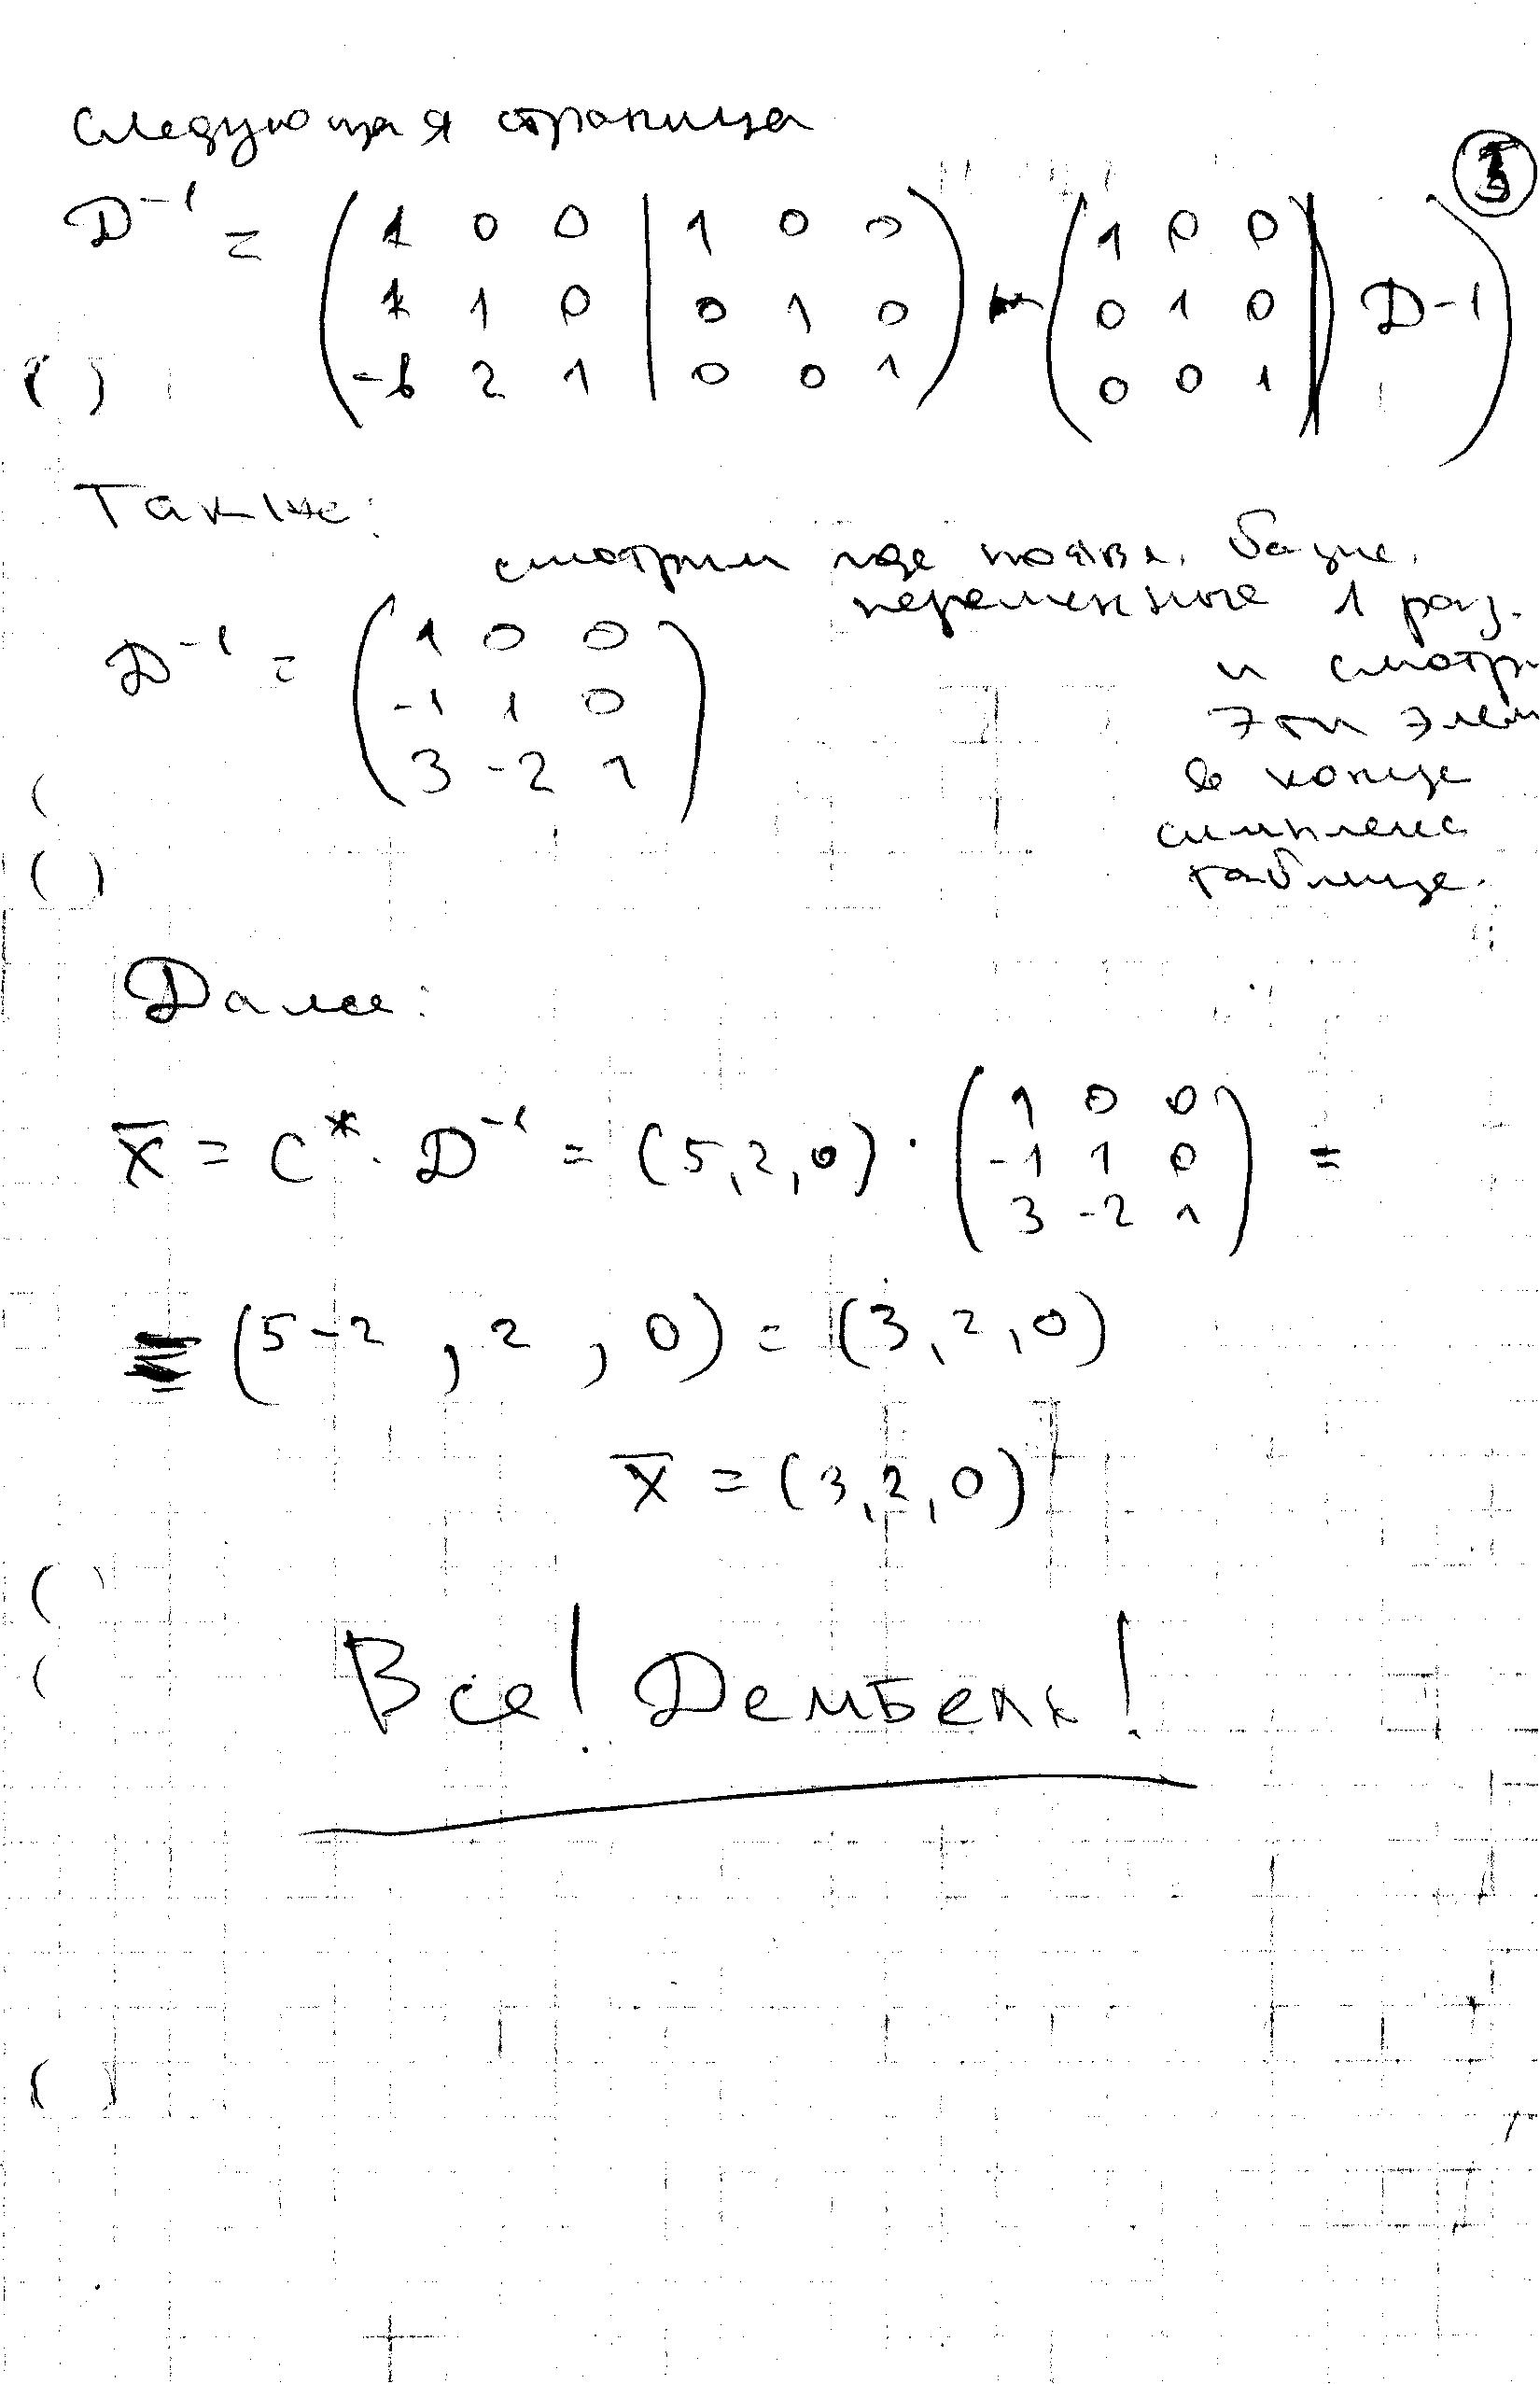 Следующая страница
3
D⁻¹ = ( 1 0 0 | 1 0 0 ) ( 1 0 0 | )
( 1 1 0 | 0 1 0 ) ~ ( 0 1 0 | D-1 )
( 2 1 | 0 0 1 ) ( 0 0 1 | )
Также:
смотрим где появл. базис.
переменные 1 раз.
и смотри
эти элем
в конце
симплекс
таблице.
D⁻¹ = ( 1 0 0 )
( -1 1 0 )
( 3 -2 1 )
Далее:
X̄ = C* · D⁻¹ = (5,2,0) · ( 1 0 0 ) =
( -1 1 0 )
( 3 -2 1 )
= (5-2 , 2 , 0) = (3,2,0)
X̄ = (3,2,0)
Все! Дембель!